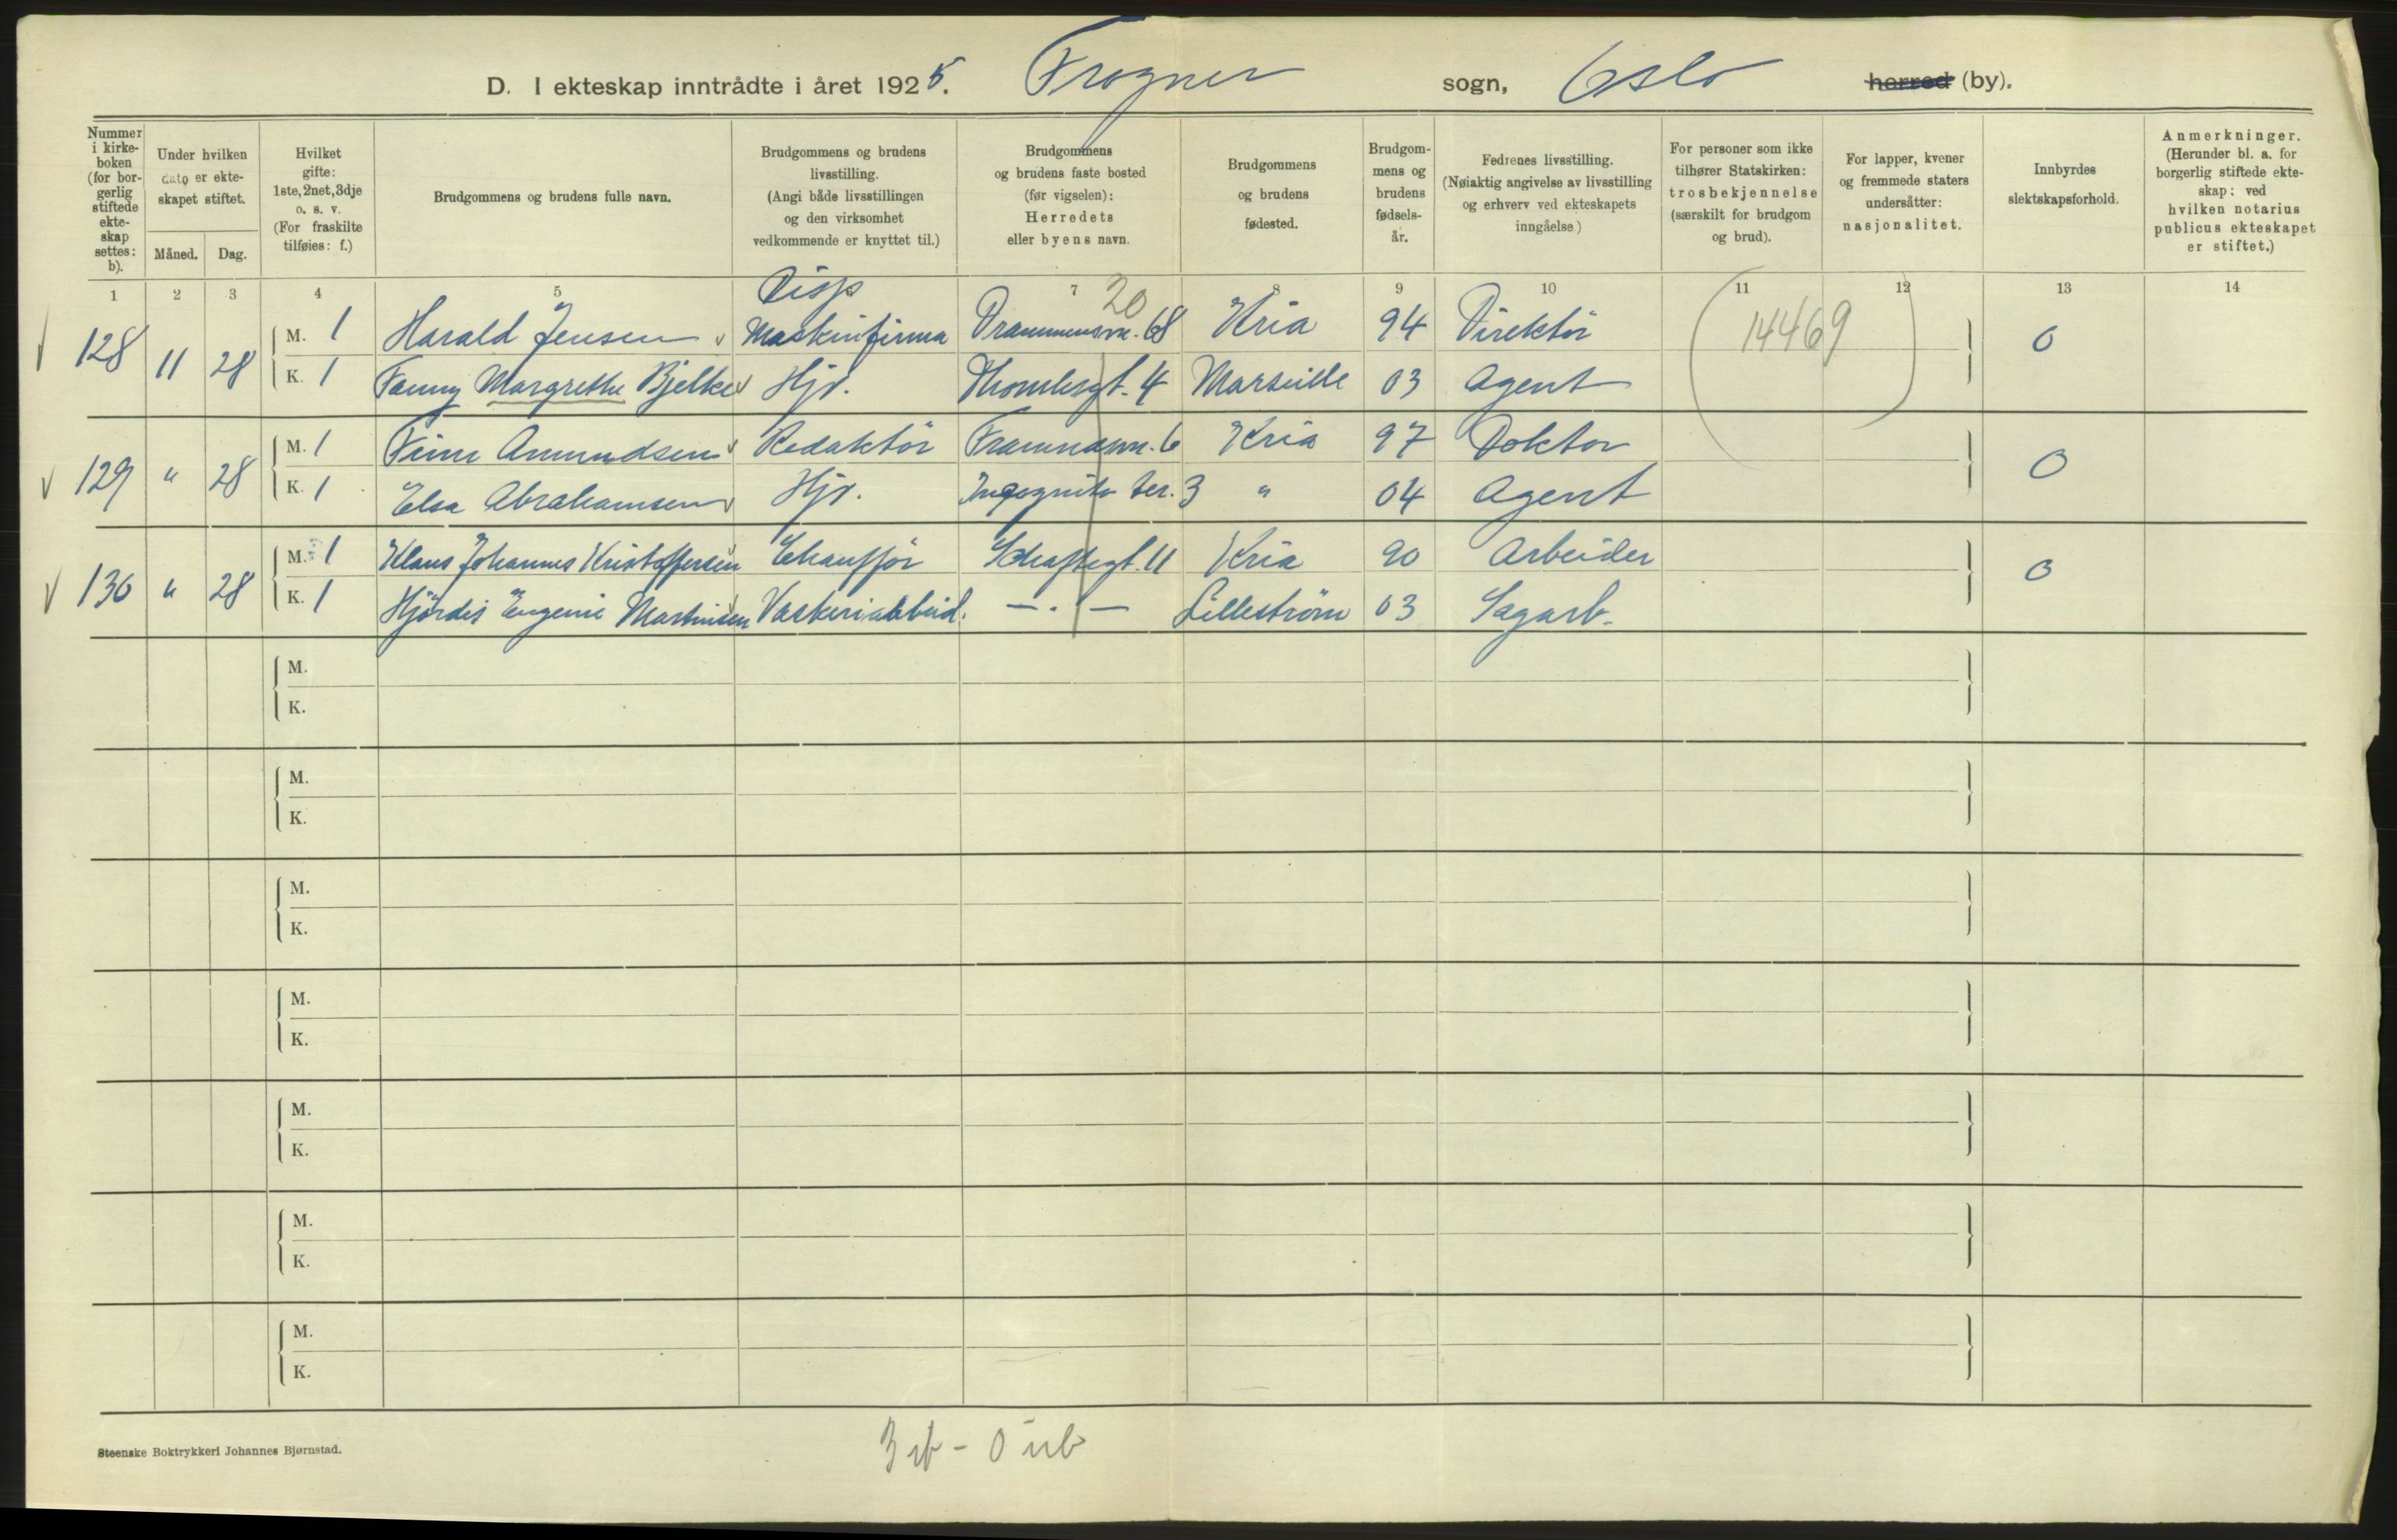 D. I ekteskap inntrådte i året 1925. Frogner sogn, Oslo herred (by).
Nummer i kirke- boken (for bor- gerlig stiftede ekte- skap settes: b).
Under hvilken dato er ekte- skapet stiftet.
Måned. Dag.
Hvilket gifte: 1ste, 2net, 3dje o. s. v. (For fraskilte tilføies: f.)
Brudgommens og brudens fulle navn.
Brudgommens og brudens livsstilling. (Angi både livsstillingen og den virksomhet vedkommende er knyttet til.)
Brudgommens og brudens faste bosted (før vigselen): Herredets eller byens navn.
Brudgommens og brudens fødested.
Brudgom- mens og brudens fødsels- år.
Fedrenes livsstilling. (Nøiaktig angivelse av livsstilling og erhverv ved ekteskapets inngåelse)
For personer som ikke tilhører Statskirken: trosbekjennelse (særskilt for brudgom og brud).
For lapper, kvener og fremmede staters undersåtter: nasjonalitet.
Innbyrdes slektskapsforhold.
Anmerkninger. (Herunder bl. a. for borgerlig stiftede ekte- skap: ved hvilken notarius publicus ekteskapet er stiftet.)
1 2 3 4 5 7 8 9 10 11 12 13 14
Disp 20
128 11 28 M. 1 Harald Jensen Maskinfirma Drammensvn. 68 Kria 94 Direktör 14469 0
K. 1 Fanny Margrethe Bjelke Hjv. Thomlesgt. 4 Marseille 03 Agent
129 " 28 M. 1 Finn Amundsen Redaktör Framnæsvn. 6 Kria 97 Doktor 0
K. 1 Elsa Abrahamsen Hjv. Incognito ter. 3 " 04 Agent
130 " 28 M. 1 Klaus Johannes Kristoffersen Chaufför Schaftegt. 11 Kria 90 Arbeider 0
K. 1 Hjördis Eugenie Martinsen Vaskeriarbeid. — " — Lilleström 03 Sagarb.
M.
K.
M.
K.
M.
K.
M.
K.
M.
K.
M.
K.
M.
K.
3 ib - 0 uib
Steenske Boktrykkeri Johannes Bjørnstad.